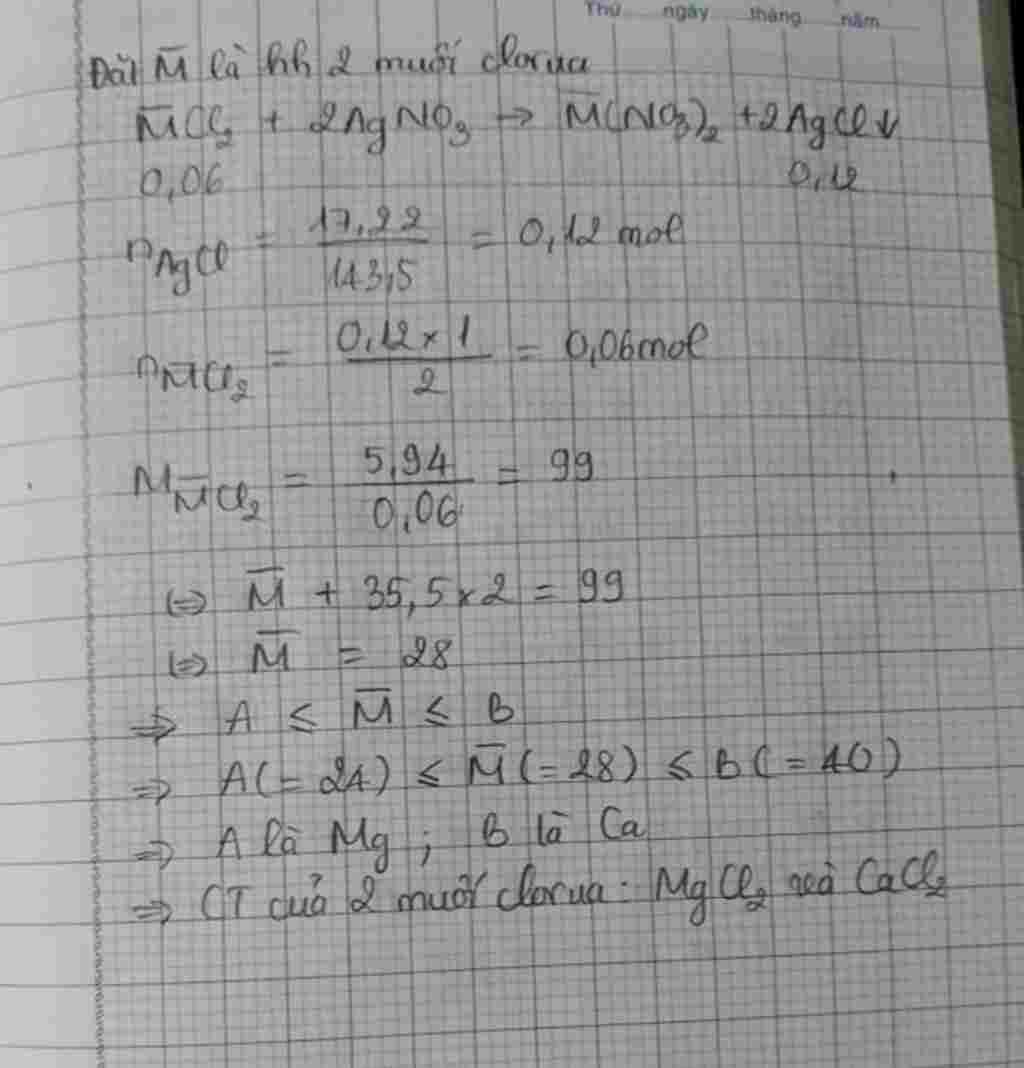 Thứ ngày tháng năm
Đặt M̅ là hh 2 muối clorua
M̅Cl₂ + 2AgNO₃ → M̅(NO₃)₂ + 2AgCl↓
0,06 0,12
nAgCl = 17,22/143,5 = 0,12 mol
nM̅Cl₂ = 0,12 × 1/2 = 0,06 mol
MM̅Cl₂ = 5,94/0,06 = 99
⇔ M̅ + 35,5 × 2 = 99
⇔ M̅ = 28
⇒ A ≤ M̅ ≤ B
⇒ A(= 24) ≤ M̅(= 28) ≤ B(= 40)
⇒ A là Mg ; B là Ca
⇒ CT của 2 muối clorua : MgCl₂ và CaCl₂